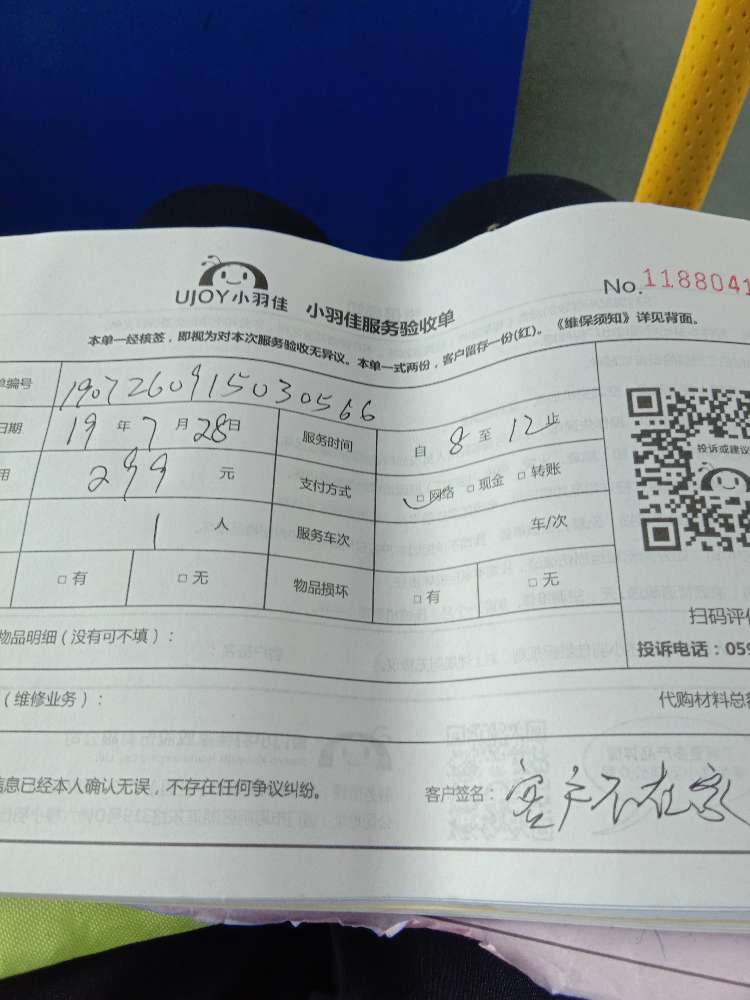 UJOY小羽佳 小羽佳服务验收单 No.1188041
本单一经核签，即视为对本次服务验收无异议。本单一式两份，客户留存一份(红)。《维保须知》详见背面。
单编号 190726091503 0566
日期 19 年 7 月 28 日 服务时间 自 8 至 12 止
用 299 元 支付方式 □ 网络 □ 现金 □ 转账
1 人 服务车次 车/次
□ 有 □ 无 物品损坏 □ 有 □ 无
投诉或建议
扫码评价
物品明细（没有可不填）： 投诉电话：059
（维修业务）： 代购材料总额
信息已经本人确认无误，不存在任何争议纠纷。 客户签名：客户不在家